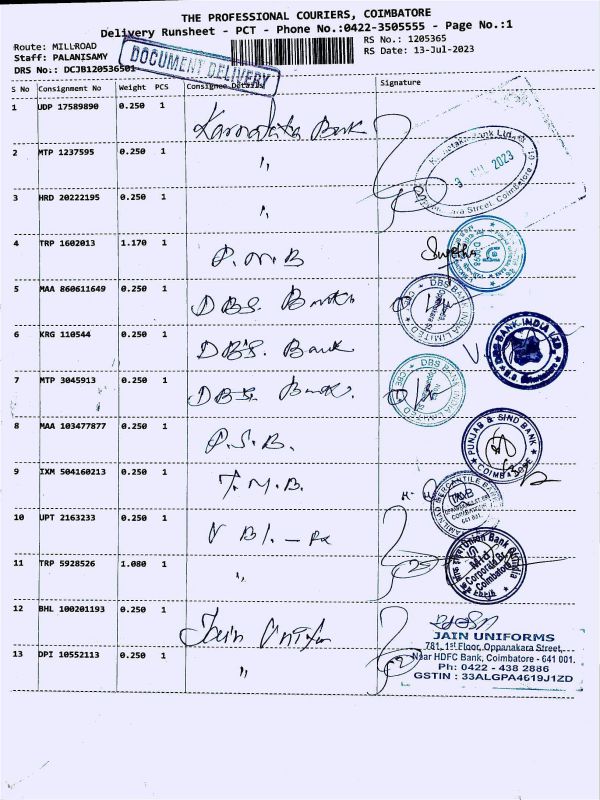 THE PROFESSIONAL COURIERS, COIMBATORE
Delivery Runsheet - PCT - Phone No.:0422-3505555 - Page No.:1
Route: MILLROAD
RS No.: 1205365
Staff: PALANISAMY
RS Date: 13-Jul-2023
DRS No.: DCJB120536501
DOCUMENT DELIVERY
S No Consignment No Weight PCS Consignee Details Signature
1 UDP 17589890 0.250 1 Karnataka Bank
2 MTP 1237595 0.250 1 "
3 HRD 20222195 0.250 1 "
4 TRP 1602013 1.170 1 P.N.B
5 MAA 860611649 0.250 1 DBS. Bank
6 KRG 110544 0.250 1 DBS. Bank
7 MTP 3045913 0.250 1 DBS. Bank.
8 MAA 103477877 0.250 1 P.S.B.
9 IXM 504160213 0.250 1 T.M.B.
10 UPT 2163233 0.250 1
11 TRP 5928526 1.080 1 "
12 BHL 100201193 0.250 1 Jain Uniform
13 DPI 10552113 0.250 1 "
2023
DBS BANK INDIA LIMITED
DBS BANK INDIA LTD
DBS BANK INDIA
PUNJAB & SIND BANK
COIMBATORE
TAMILNAD MERCANTILE BANK
TMB
Union Bank of India
Mid Corporate Br.
Coimbatore
JAIN UNIFORMS
781, 1st Floor, Oppanakara Street,
Near HDFC Bank, Coimbatore - 641 001.
Ph: 0422 - 438 2886
GSTIN : 33ALGPA4619J1ZD